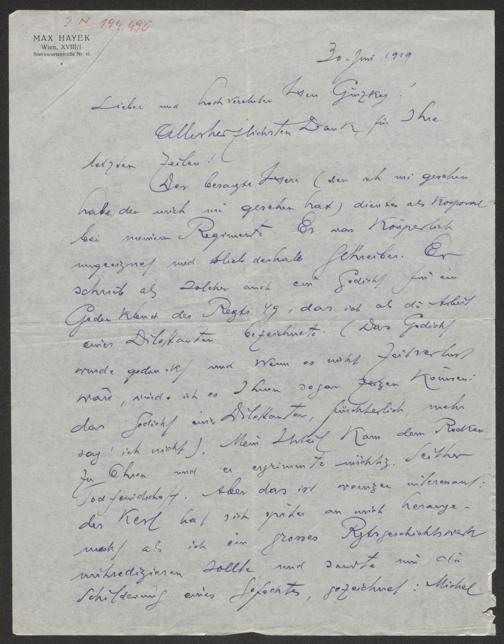 J. N. 194.496
MAX HAYEK
Wien, XVIII/1
Sternwartestraße Nr.
30. Juni 1919
Lieber und hochverehrter Herr Ginzkey!
Allerherzlichsten Dank für Ihre
letzten Zeilen!
Der besagte Herr (den ich nie gesehen
habe, der mich nie gesehen hat) diente als Korporal
bei meinem Regimente. Er war körperlich
ungeeignet und blieb deshalb Schreiber. Er
schrieb als solcher auch ein Gedicht für ein
Gedenkblatt des Regts 49, das ich als die Arbeit
eines Dilettanten bezeichnete. (Das Gedicht
wurde gedruckt und wenn es nicht Zeitverlust
wäre, würde ich es Ihnen sogar zeigen können:
das Gedicht eines Dilettanten, fürchterlich mehr
sag' ich nicht). Mein Urteil kam dem
zu Ohren und er ergrimmte mächtig. Seither
Todfeindschaft. Aber das ist weniger interessant:
der Kerl hat sich später an mich herange-
macht als ich ein grosses Rgtsgeschichtswerk
mitredigieren sollte und sandte mir die
Schilderung eines Gefechtes, gezeichnet: Michel